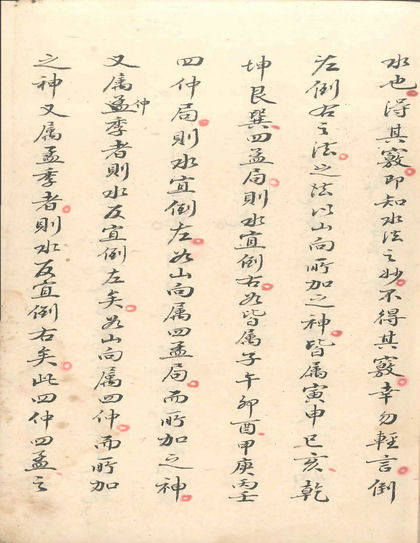 水也得其竅即知水法之妙不得其竅幸勿輕言倒
左倒右之法之法以山向所加之神皆属寅申巳亥乾
坤艮巽四孟局則水宜倒右如皆属子午卯酉甲庚丙壬
四仲局則水宜倒左如山向属四孟局而所加之神
又属仲季者則水反宜倒左矣如山向属四仲而所加
之神又属孟季者則水反宜倒右矣此四仲四孟之